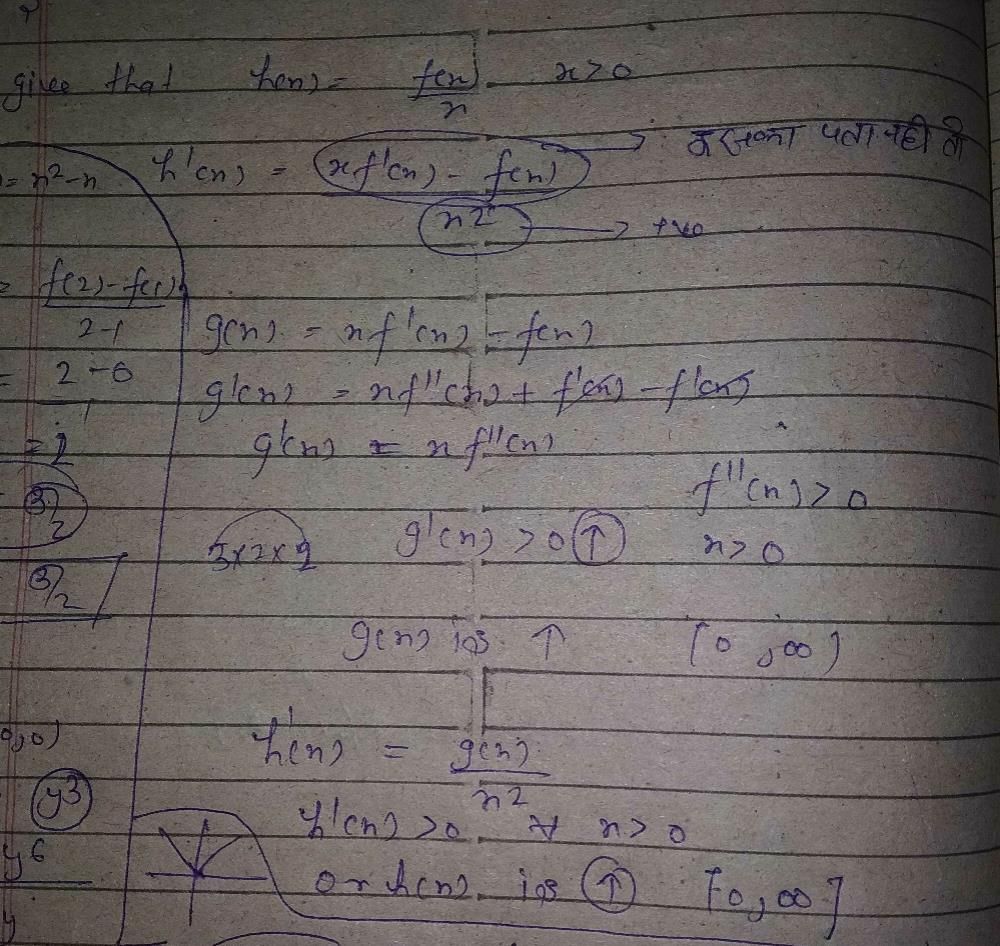 given that h(x) = f(x)/x x>0
= x²-x h'(x) = (xf'(x) - f(x))/x² → पता नही
→ +ve
= f(2)-f(1)/2-1
g(x) = xf'(x) - f(x)
= 2-0/1
g'(x) = xf''(x) + f'(x) - f'(x)
= 2
g'(x) = xf''(x)
f''(x)>0
3/2
3x2x g'(x) >0 ↑ x>0
3/2
g(x) is ↑ [0,∞)
0,0)
h'(x) = g(x)/x²
y3
h'(x) >0 ∀ x>0
y6
or h(x) is ↑ [0,∞]
y